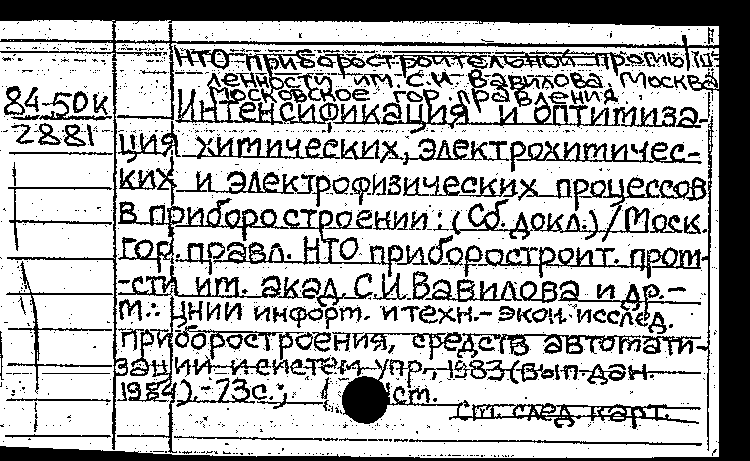 НТО приборостроительной промышленности им. С.И. Вавилова, Москва
Московское гор. правление.
84-50к
2881
Интенсификация и оптимиза-
ция химических, электрохимичес-
ких и электрофизических процессов
в приборостроении: (Сб. докл.) / Моск.
гор. правл. НТО приборостроит. пром-
-сти им. акад. С.И. Вавилова и др.-
М.: ЦНИИ информ. и техн.-экон. исслед.
приборостроения, средств автомати-
зации и систем упр., 1983 (вып. дан.
1984).-73с.;
ст.
См. след. карт.